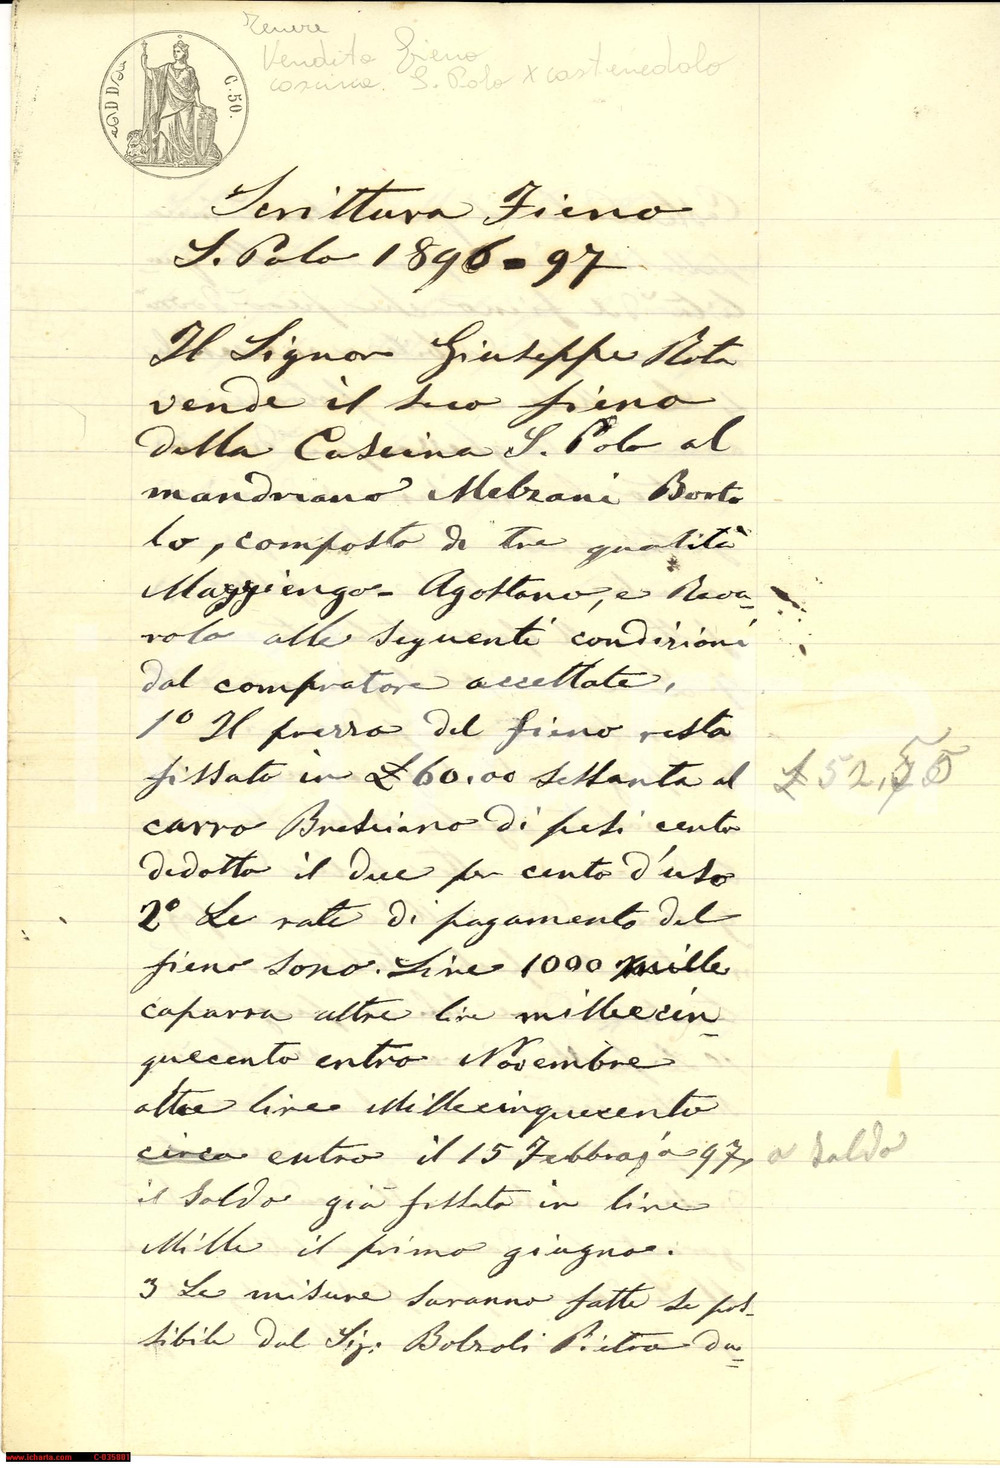 Tenere
Vendita fieno
cascina S. Polo x castenedolo
C. 50.
Scrittura Fieno
S. Polo 1896=97
Il Signor Giuseppe Rota
vende il suo fieno
della Cascina S. Polo al
mandriano Melzani Borto
lo, composto di tre qualità
Maggiengo- Agostano, e Reva-
rolo alle seguenti condizioni
dal compratore accettate,
1° Il prezzo del fieno resta
fissato in £ 60.00 sessanta al
£ 52,50
carro Bresciano di pesi cento
dedotto il due per cento d'uso
2° Le rate di pagamento del
fieno sono. Lire 1000 mille
caparra altre lire millecin=
quecento entro Novembre
altre lire Millecinquecento
circa entro il 15 Febbrajo 97,
a Saldo
il Saldo già fissato in lire
Mille il primo giugno.
3 Le misure saranno fatte se pos-
sibile dal Sig: Bolzoli Pietro da=
www.icharta.com C-035881